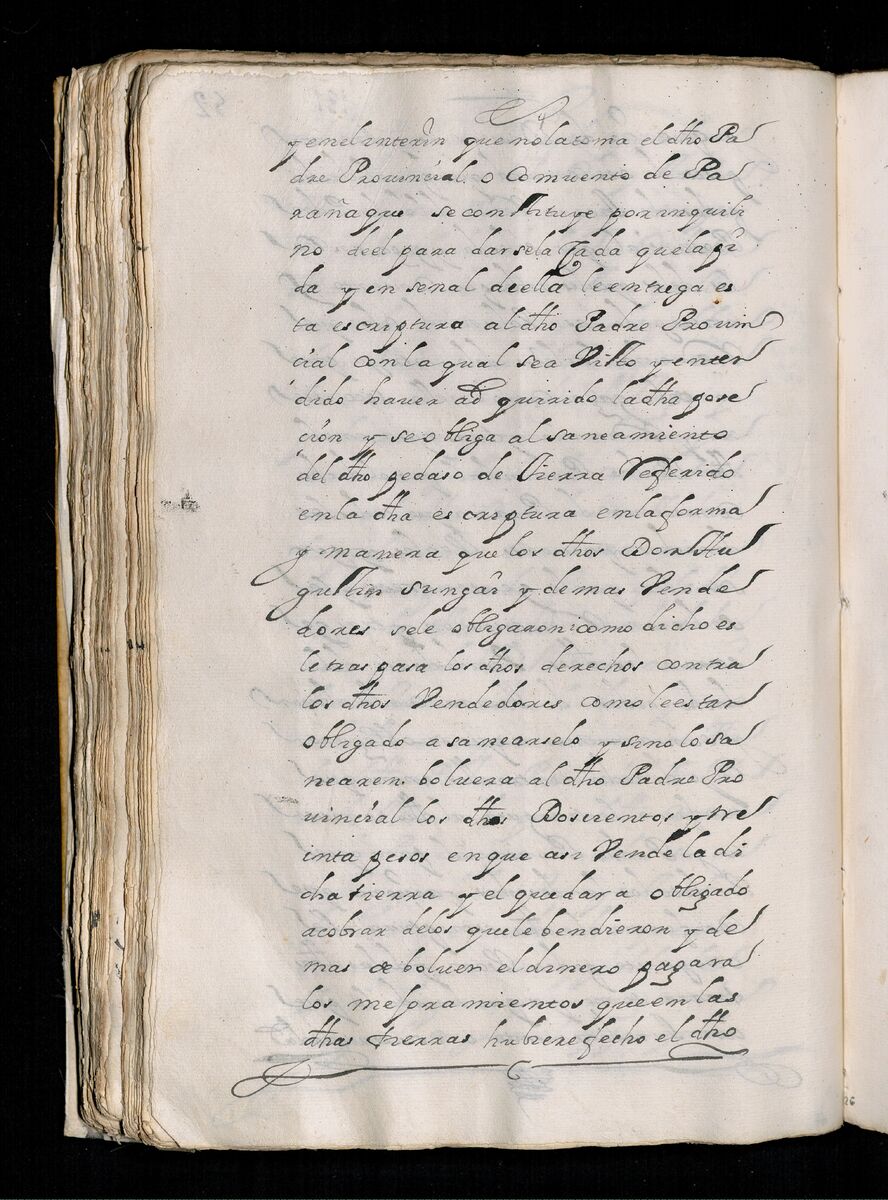 y en el interin que no la toma el dho Pa
dre Provincial o Comvento de Pa
rañaque se constituye por inquili
no de el para darsela cada que la pi
da y en señal de ella le entrega es
ta escriptura al dho Padre Provin
cial con la qual sea visto y enten
dido haver adquirido la dha pose
cion y se obliga al saneamiento
del dho pedaso de tierra referido
en la dha escriptura en la forma
y manera que los dhos Don Au
gustin Sungâi y demas Vende
dores se le obligaron i como dicho es
le traspasa los dhos derechos contra
los dhos Vendedores como le estar
obligado a sanearselo y si no lo sa
nearen bolvera al dho Padre Pro
vincial los dhos Doscientos y tre
inta pesos en que asi Vende la di
cha tierra y el quedara obligado
a cobrar de los que le bendieron y de
mas de bolver el dinero pagara
los mejoramientos que en las
dhas tierras hubiere fecho el dho